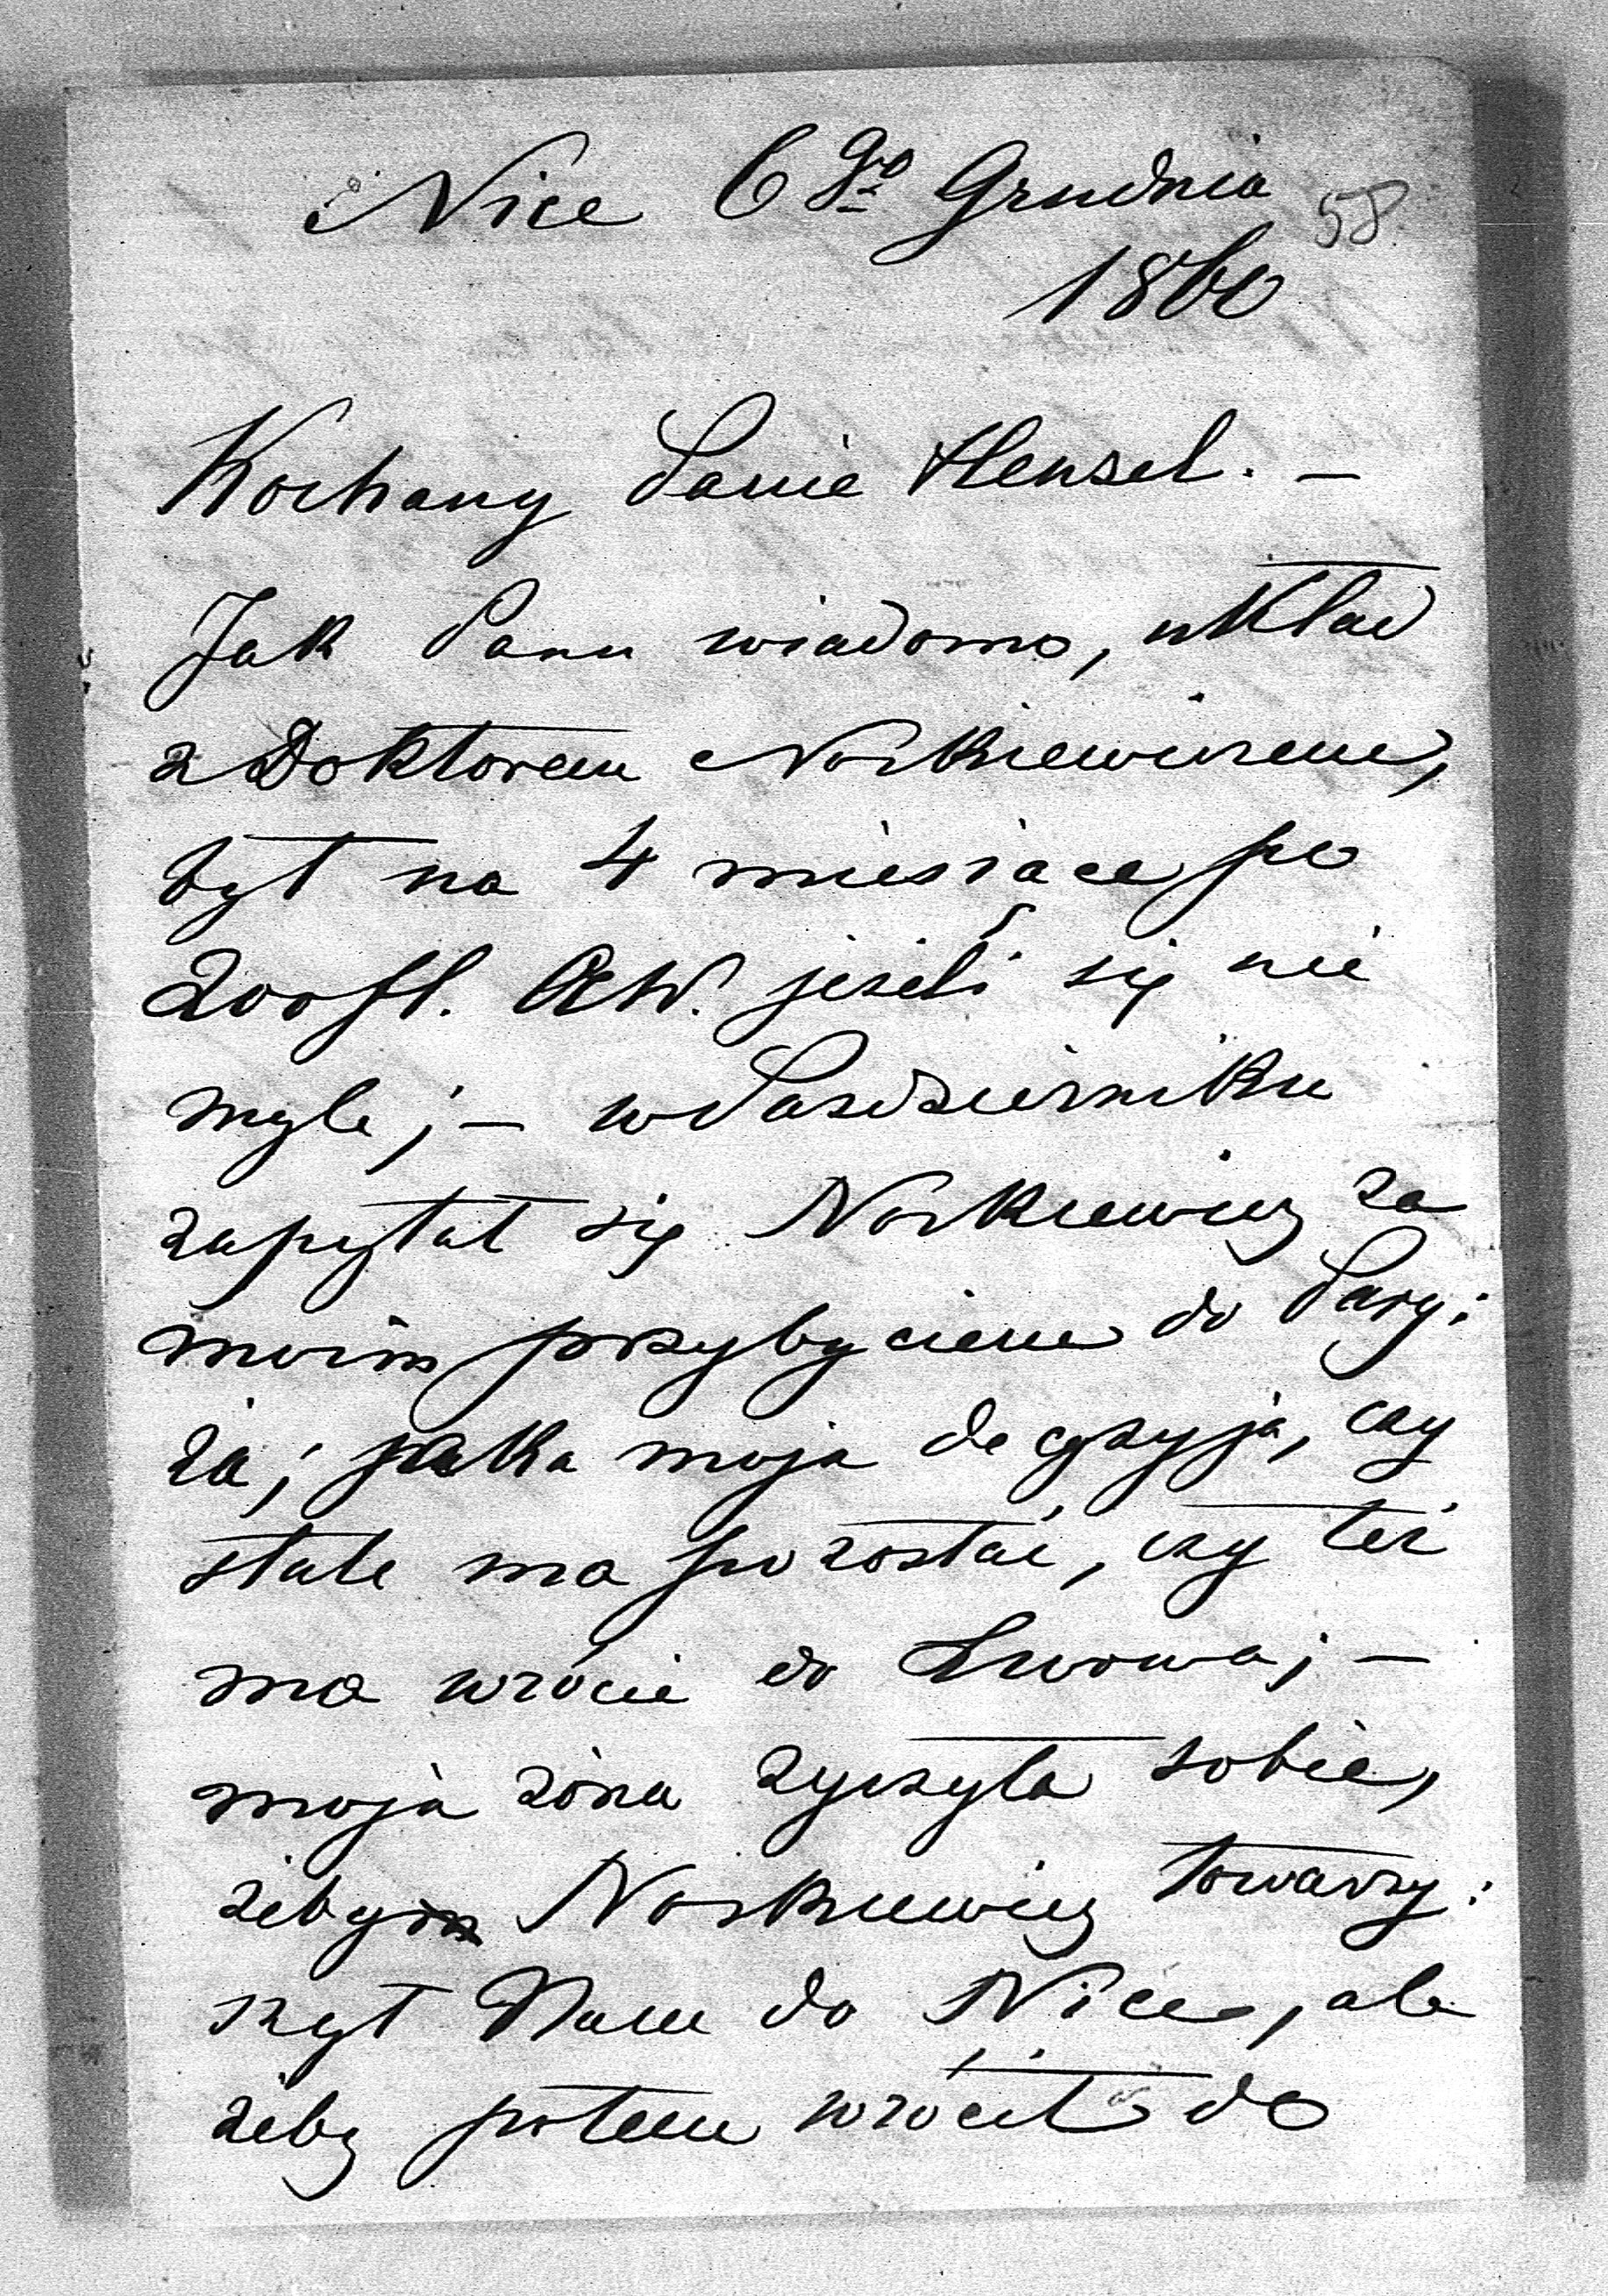 Nice 6go Grudnia
58.
1860
Kochany Panie Hensel. –
Jak Panu wiadomo, układ
z Doktorem Noskiewiczem,
był na 4 miesiące po
200 fl. AW. jeżeli się nie
myle; – w Październiku
zapytał się Noskiewicz za
moim przybyciem do Pary:
ża; jaka moja decyzyja, czy
stale ma pozostać, czy też
ma wrócić do Lwowa; –
moja żona życzyła sobie,
żeby Noskiewicz towarzy:
szył Nam do Nice, ale
żeby potem wrócił do